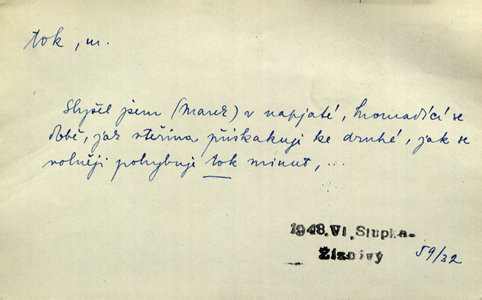 tok, m.
Slyšel jsem (Marek) v napjaté, hromadící se
době, jak vteřina přiskakuje ke druhé, jak se
volněji pohybuje tok minut, ...
1948.VI. Stupka-
Žíznivý
59/32